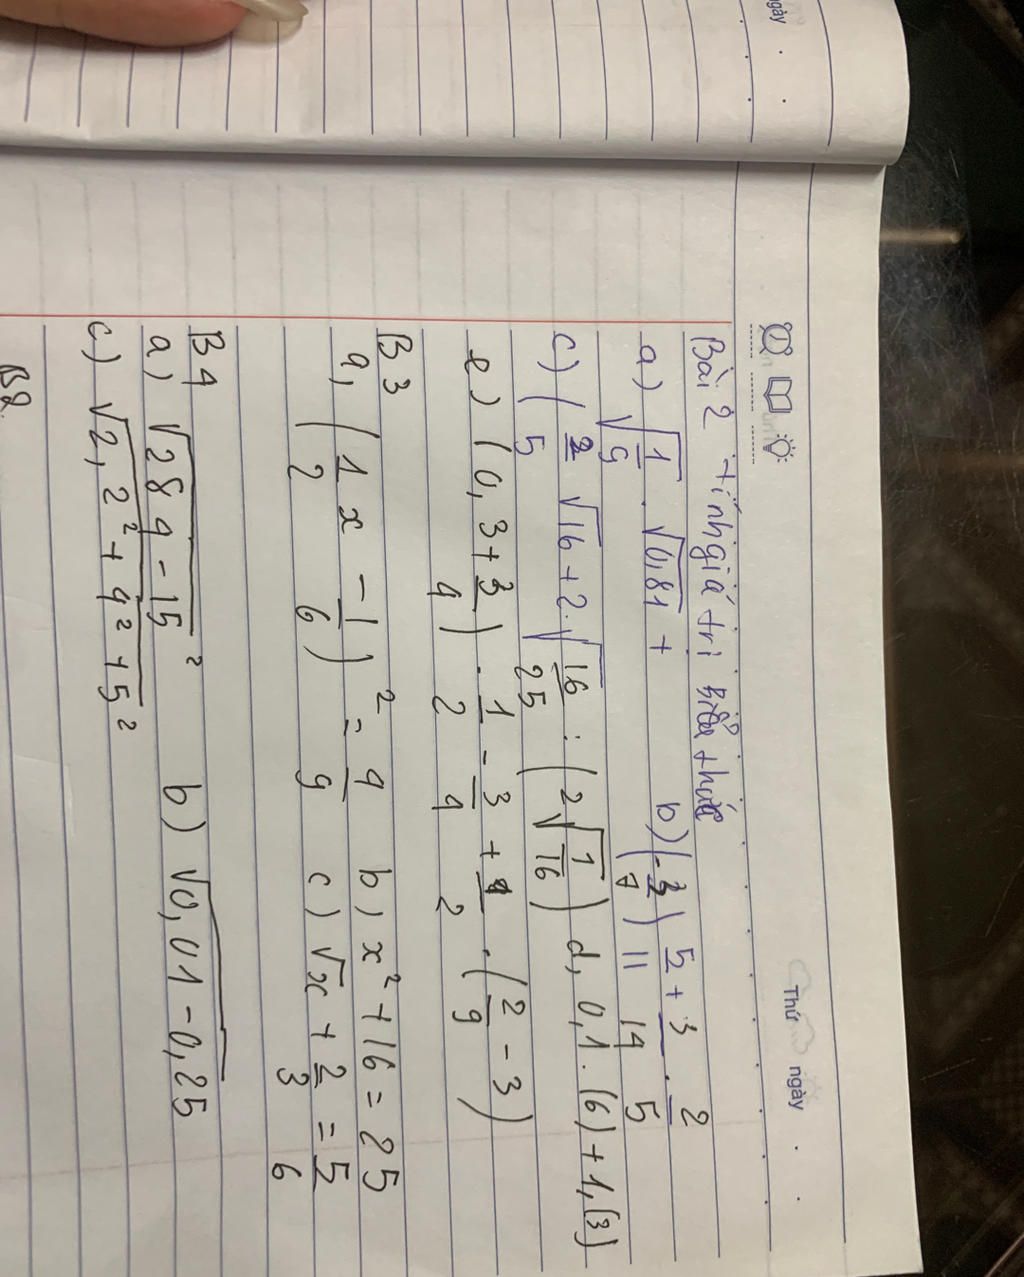 Thứ ngày
Bài 2 tính giá trị biểu thức
a) √(1/9) . √0,81 + b) (-3/7) 5/11 + 3/14 . 2/5
c) (2/5 √16 + 2.√(16/25) : (2√(1/16)) d, 0,1.(6) + 1,(3)
e) (0,3 + 3/4) . 1/2 - 3/4 + 1/2 . (2/9 - 3)
B3
a, (1/2 x - 1/6)² = 4/9 b) x² + 16 = 25
c) √x + 2/3 = 5/6
B4
a) √289 - 15² b) √0,01 - 0,25
c) √2,2² + 4² + 5²
B2
ngày